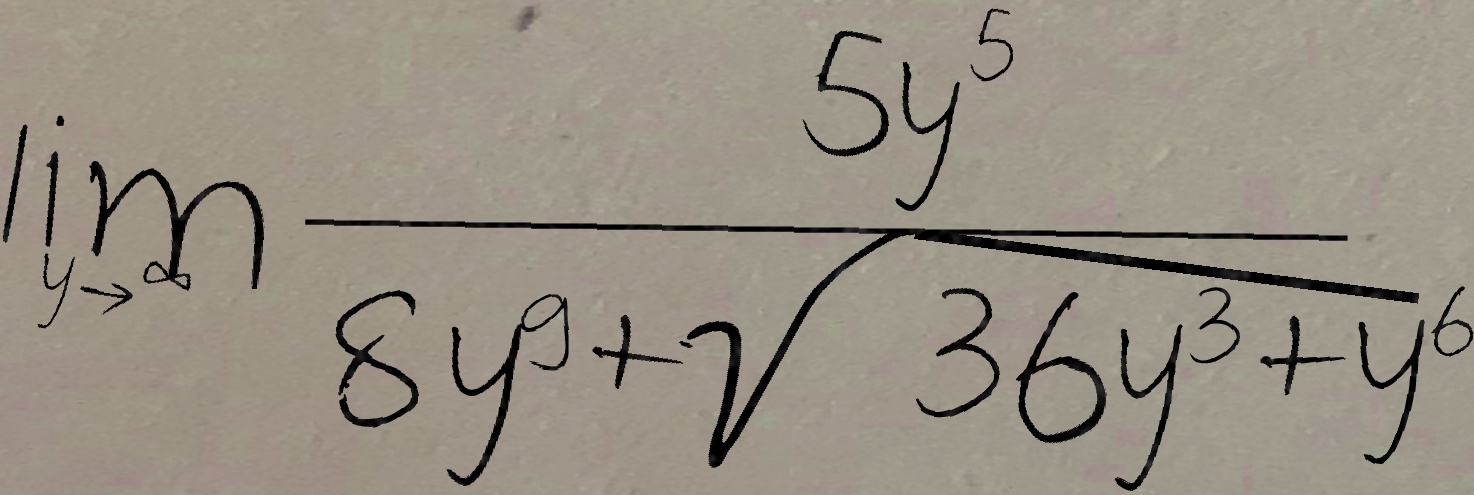 \lim_{y \to \infty} \frac{5y^5}{8y^9 + \sqrt{36y^3 + y^6}}